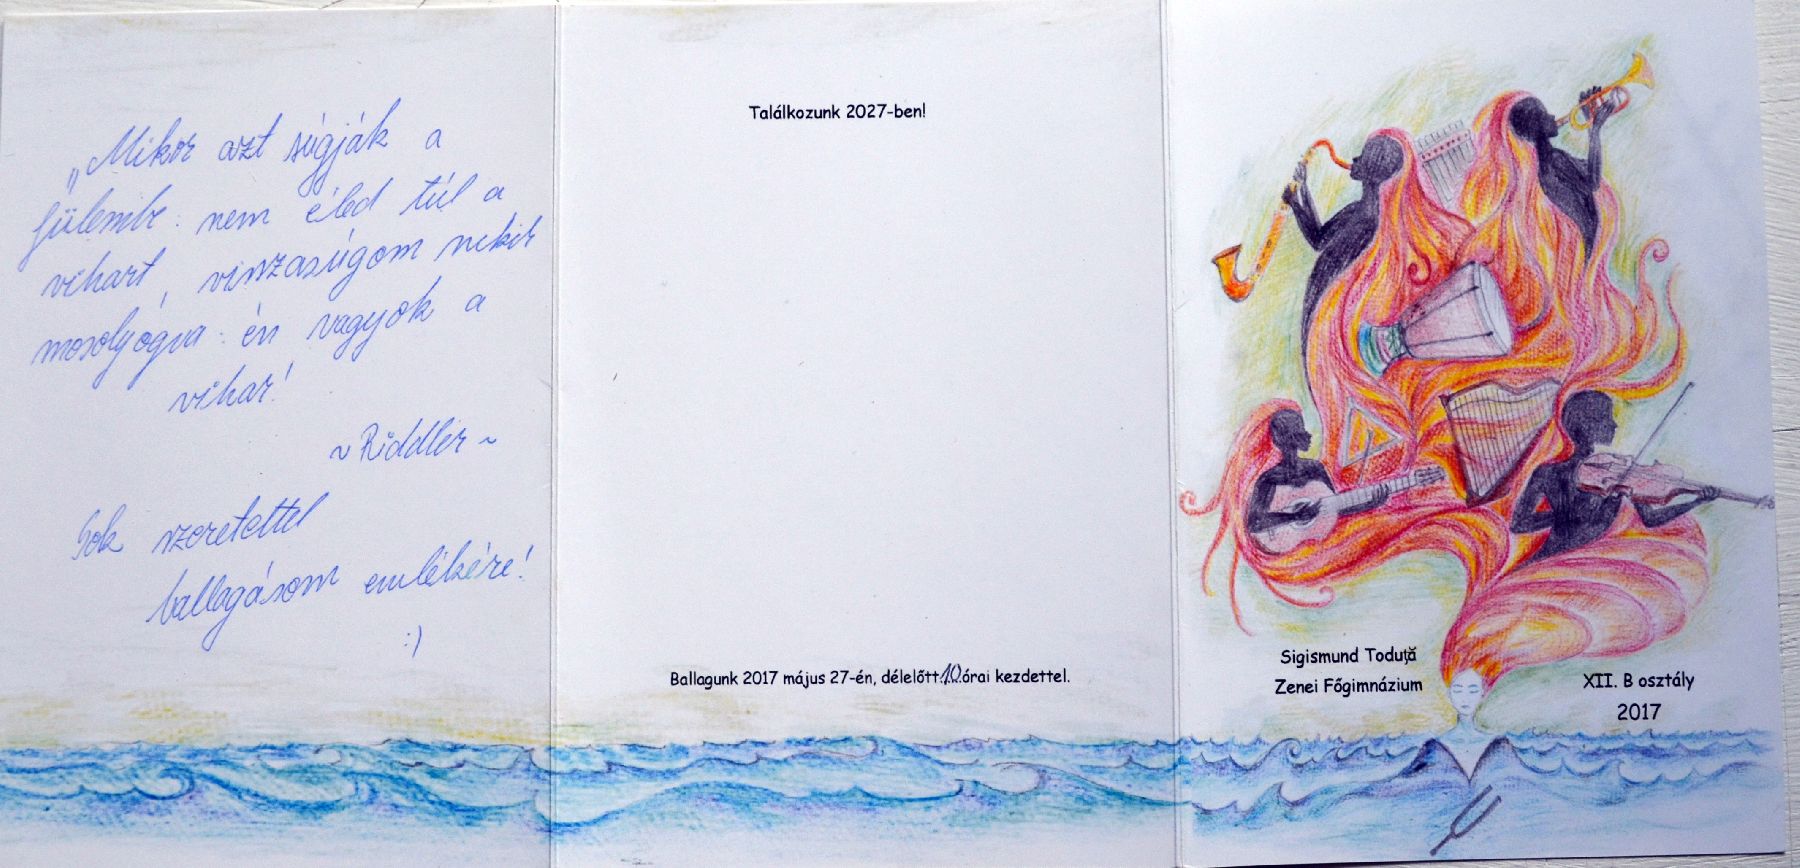 „Mikor azt súgják a
fülembe: nem éled túl a
vihart, visszasúgom nekik
mosolyogva: én vagyok a
vihar!
~ Riddler ~
Sok szeretettel
ballagásom emlékére!
:)
Találkozunk 2027-ben!
Ballagunk 2017 május 27-én, délelőtt 10 órai kezdettel.
Sigismund Toduță
Zenei Főgimnázium
XII. B osztály
2017